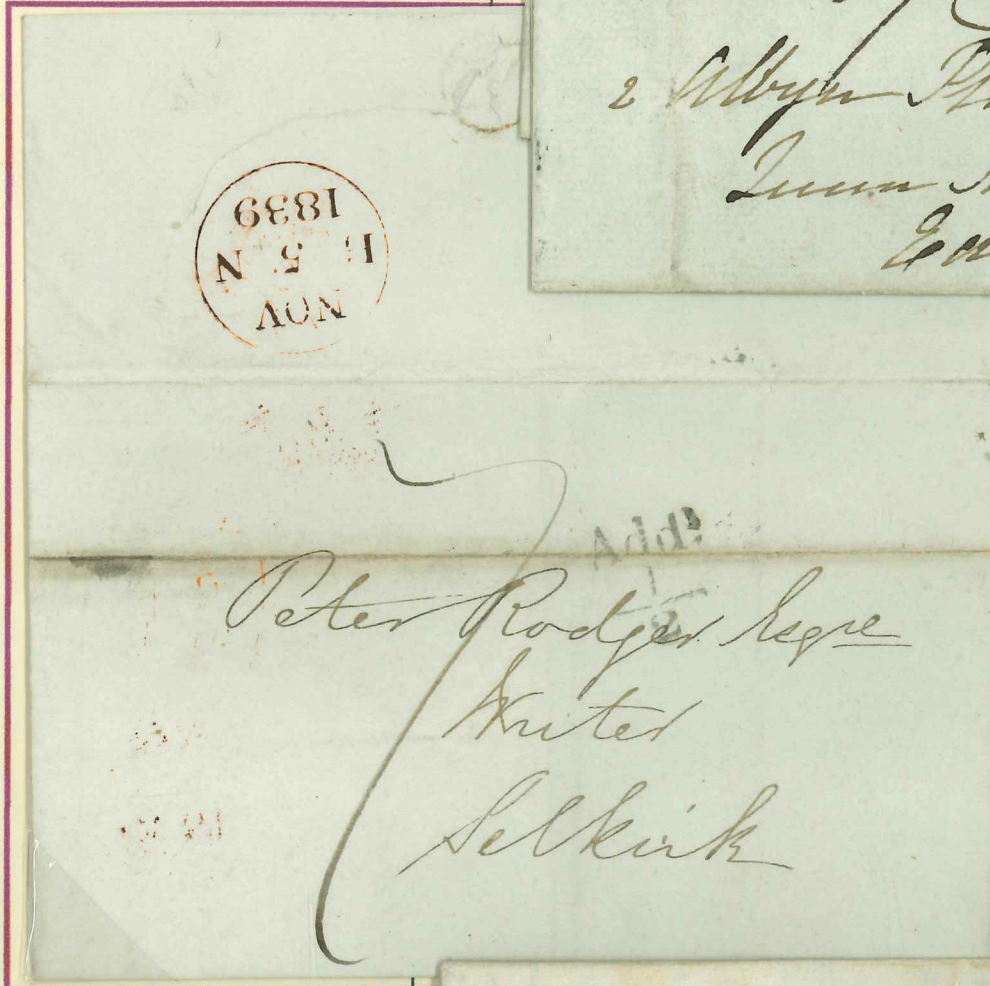 2 Albyn
Queen
NOV
5 N
1839
Addl
1
2
7
Peter Rodger Esqre
Writer
Selkirk